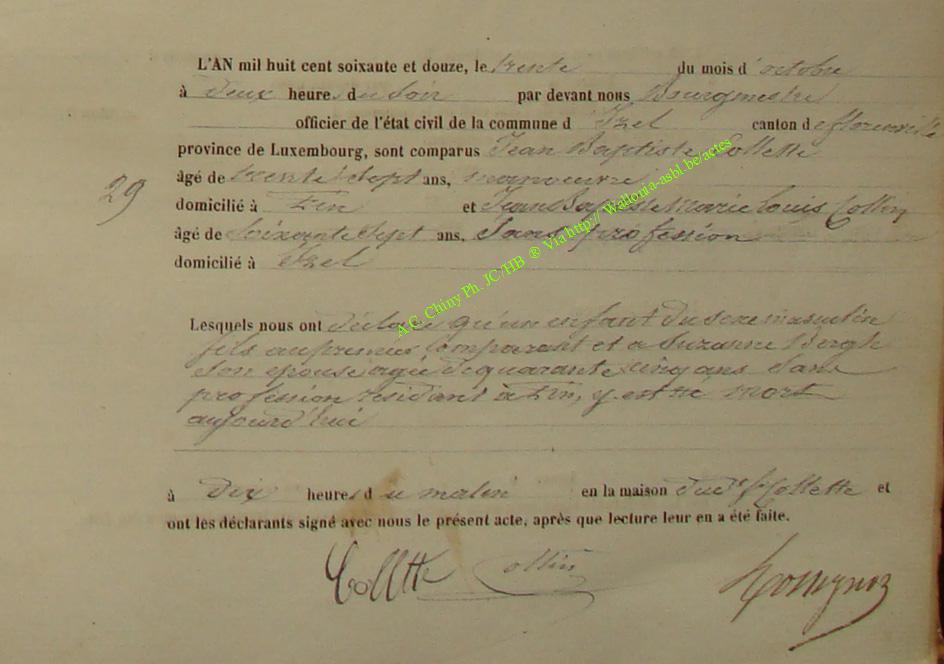 L'AN mil huit cent soixante et douze, le trente du mois d'octobre
à Deux heures du Soir par devant nous Bourgmestre
officier de l'état civil de la commune d'Izel canton de florenville
province de Luxembourg, sont comparus Jean Baptiste Collette
âgé de trente Sept ans, manoeuvre
29
domicilié à Pin et Jean Baptiste Marie Louis Collin
âgé de Soixante Sept ans, Sans profession
domicilié à Izel
Lesquels nous ont Déclaré qu'un enfant du sexe masculin
fils au premier Comparant et a Suzanne Bergh
Son épouse agée de quarante cinq ans Sans
profession résidant à Pin, y est né mort
aujourd'hui
à Dix heures du matin en la maison dudt Sr Collette et
ont les déclarants signé avec nous le présent acte, après que lecture leur en a été faite.
Collette Collin
A.G. Chiny Ph. JC/HB ® Via http:// Wallonia-asbl.be/actes